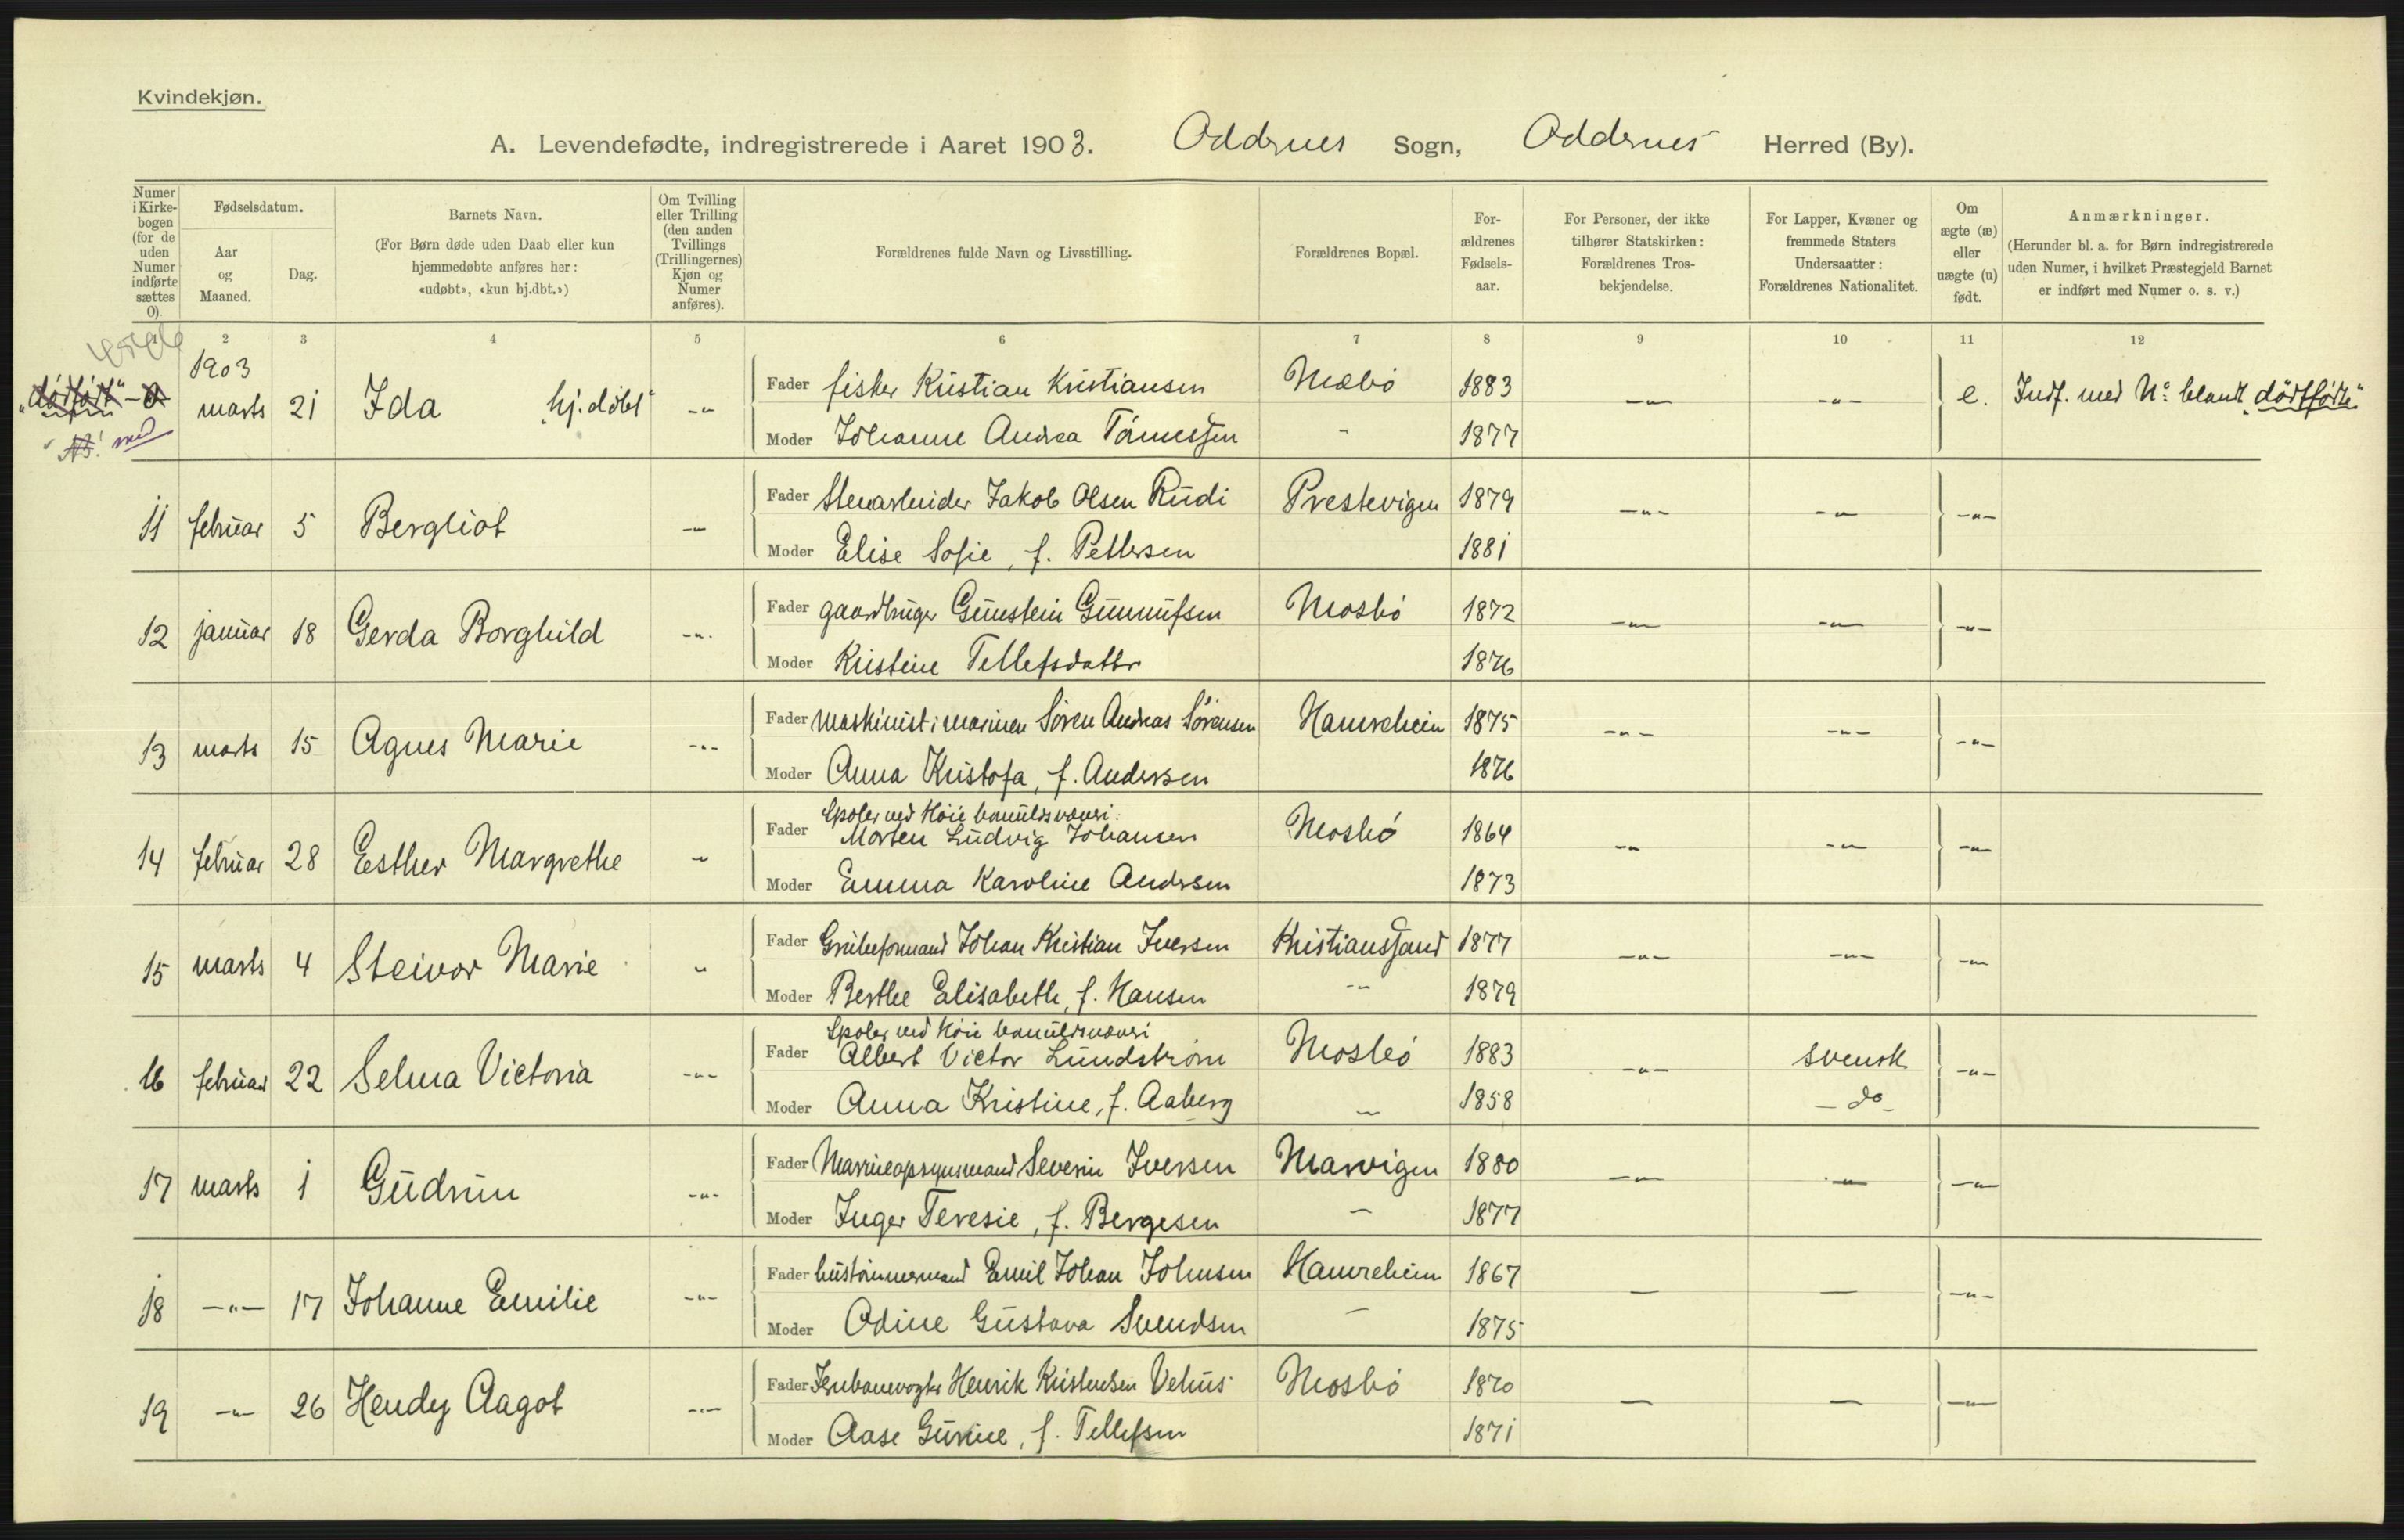 Kvindekjøn.
A. Levendefødte, indregistrerede i Aaret 1903. Oddernes Sogn, Oddernes Herred (By).
Numer i Kirkebogen (for de uden Numer indførte sættes 0).
Fødselsdatum.
Aar og Maaned.
Dag.
Barnets Navn.
(For Børn døde uden Daab eller kun hjemmedøbte anføres her: «udøbt», «kun hj.dbt.»)
Om Tvilling eller Trilling (den anden Tvillings (Trillingernes) Kjøn og Numer anføres).
Forældrenes fulde Navn og Livsstilling.
Forældrenes Bopæl.
Forældrenes Fødselsaar.
For Personer, der ikke tilhører Statskirken: Forældrenes Trosbekjendelse.
For Lapper, Kvæner og fremmede Staters Undersaatter: Forældrenes Nationalitet.
Om ægte (æ) eller uægte (u) født.
Anmærkninger.
(Herunder bl. a. for Børn indregistrerede uden Numer, i hvilket Præstegjeld Barnet er indført med Numer o. s. v.)
2 3 4 5 6 7 8 9 10 11 12
1903
"dödfödt" - 0 marts 21 Ida "hj. döbt" -"- Fader fisker Kristian Kristiansen Mæbö 1883 -"- -"- e. Indf. med No: blandt "dödfödte"
med
Moder Johanne Andrea Tönnessen - 1877
11 februar 5 Bergliot -"- Fader Stenarbeider Jakob Olsen Rudi Prestevigen 1879 -"- -"- -"-
Moder Elise Sofie, f. Pettersen 1881
12 januar 18 Gerda Borghild -"- Fader gaardbruger Gunstein Gunnufsen Mosbö 1872 -"- -"- -"-
Moder Kristine Tellefsdatter 1876
13 marts 15 Agnes Marie -"- Fader Maskinist i marinen Sören Andreas Sörensen Hamreheien 1875 -"- -"- -"-
Moder Anna Kristofa, f. Andersen 1876
Spoler ved Höie bomuldsvæveri
14 februar 28 Esther Margrethe " Fader Morten Ludvig Johansen Mosbö 1864 -"- -"- -"-
Moder Emma Karoline Andersen 1873
15 marts 4 Steivor Marie " Fader Grubeformand Johan Kristian Iversen Kristianssand 1877 -"- -"- -"-
Moder Berthe Elisabeth, f. Hansen -"- 1879
Spoler ved Höie bomuldsvæveri
16 februar 22 Selma Victoria -"- Fader Albert Victor Lundström Mosbö 1883 -"- svensk -"-
Moder Anna Kristine, f. Aaberg - 1858 - do -
17 marts 1 Gudrun -"- Fader Marineopsynsmand Severin Iversen Marvigen 1880 -"- -"- -"-
Moder Inger Teresie, f. Bergesen - 1877
18 -"- 17 Johanne Emilie -"- Fader hustömmermand Emil Johan Johnsen Hamreheien 1867 - - -"-
Moder Odine Gustava Svendsen - 1875
19 -"- 26 Hendy Aagot -"- Fader Jernbanevogter Henrik Kristensen Vehus Mosbö 1870 - - -"-
Moder Aase Gurine, f. Tellefsen 1871